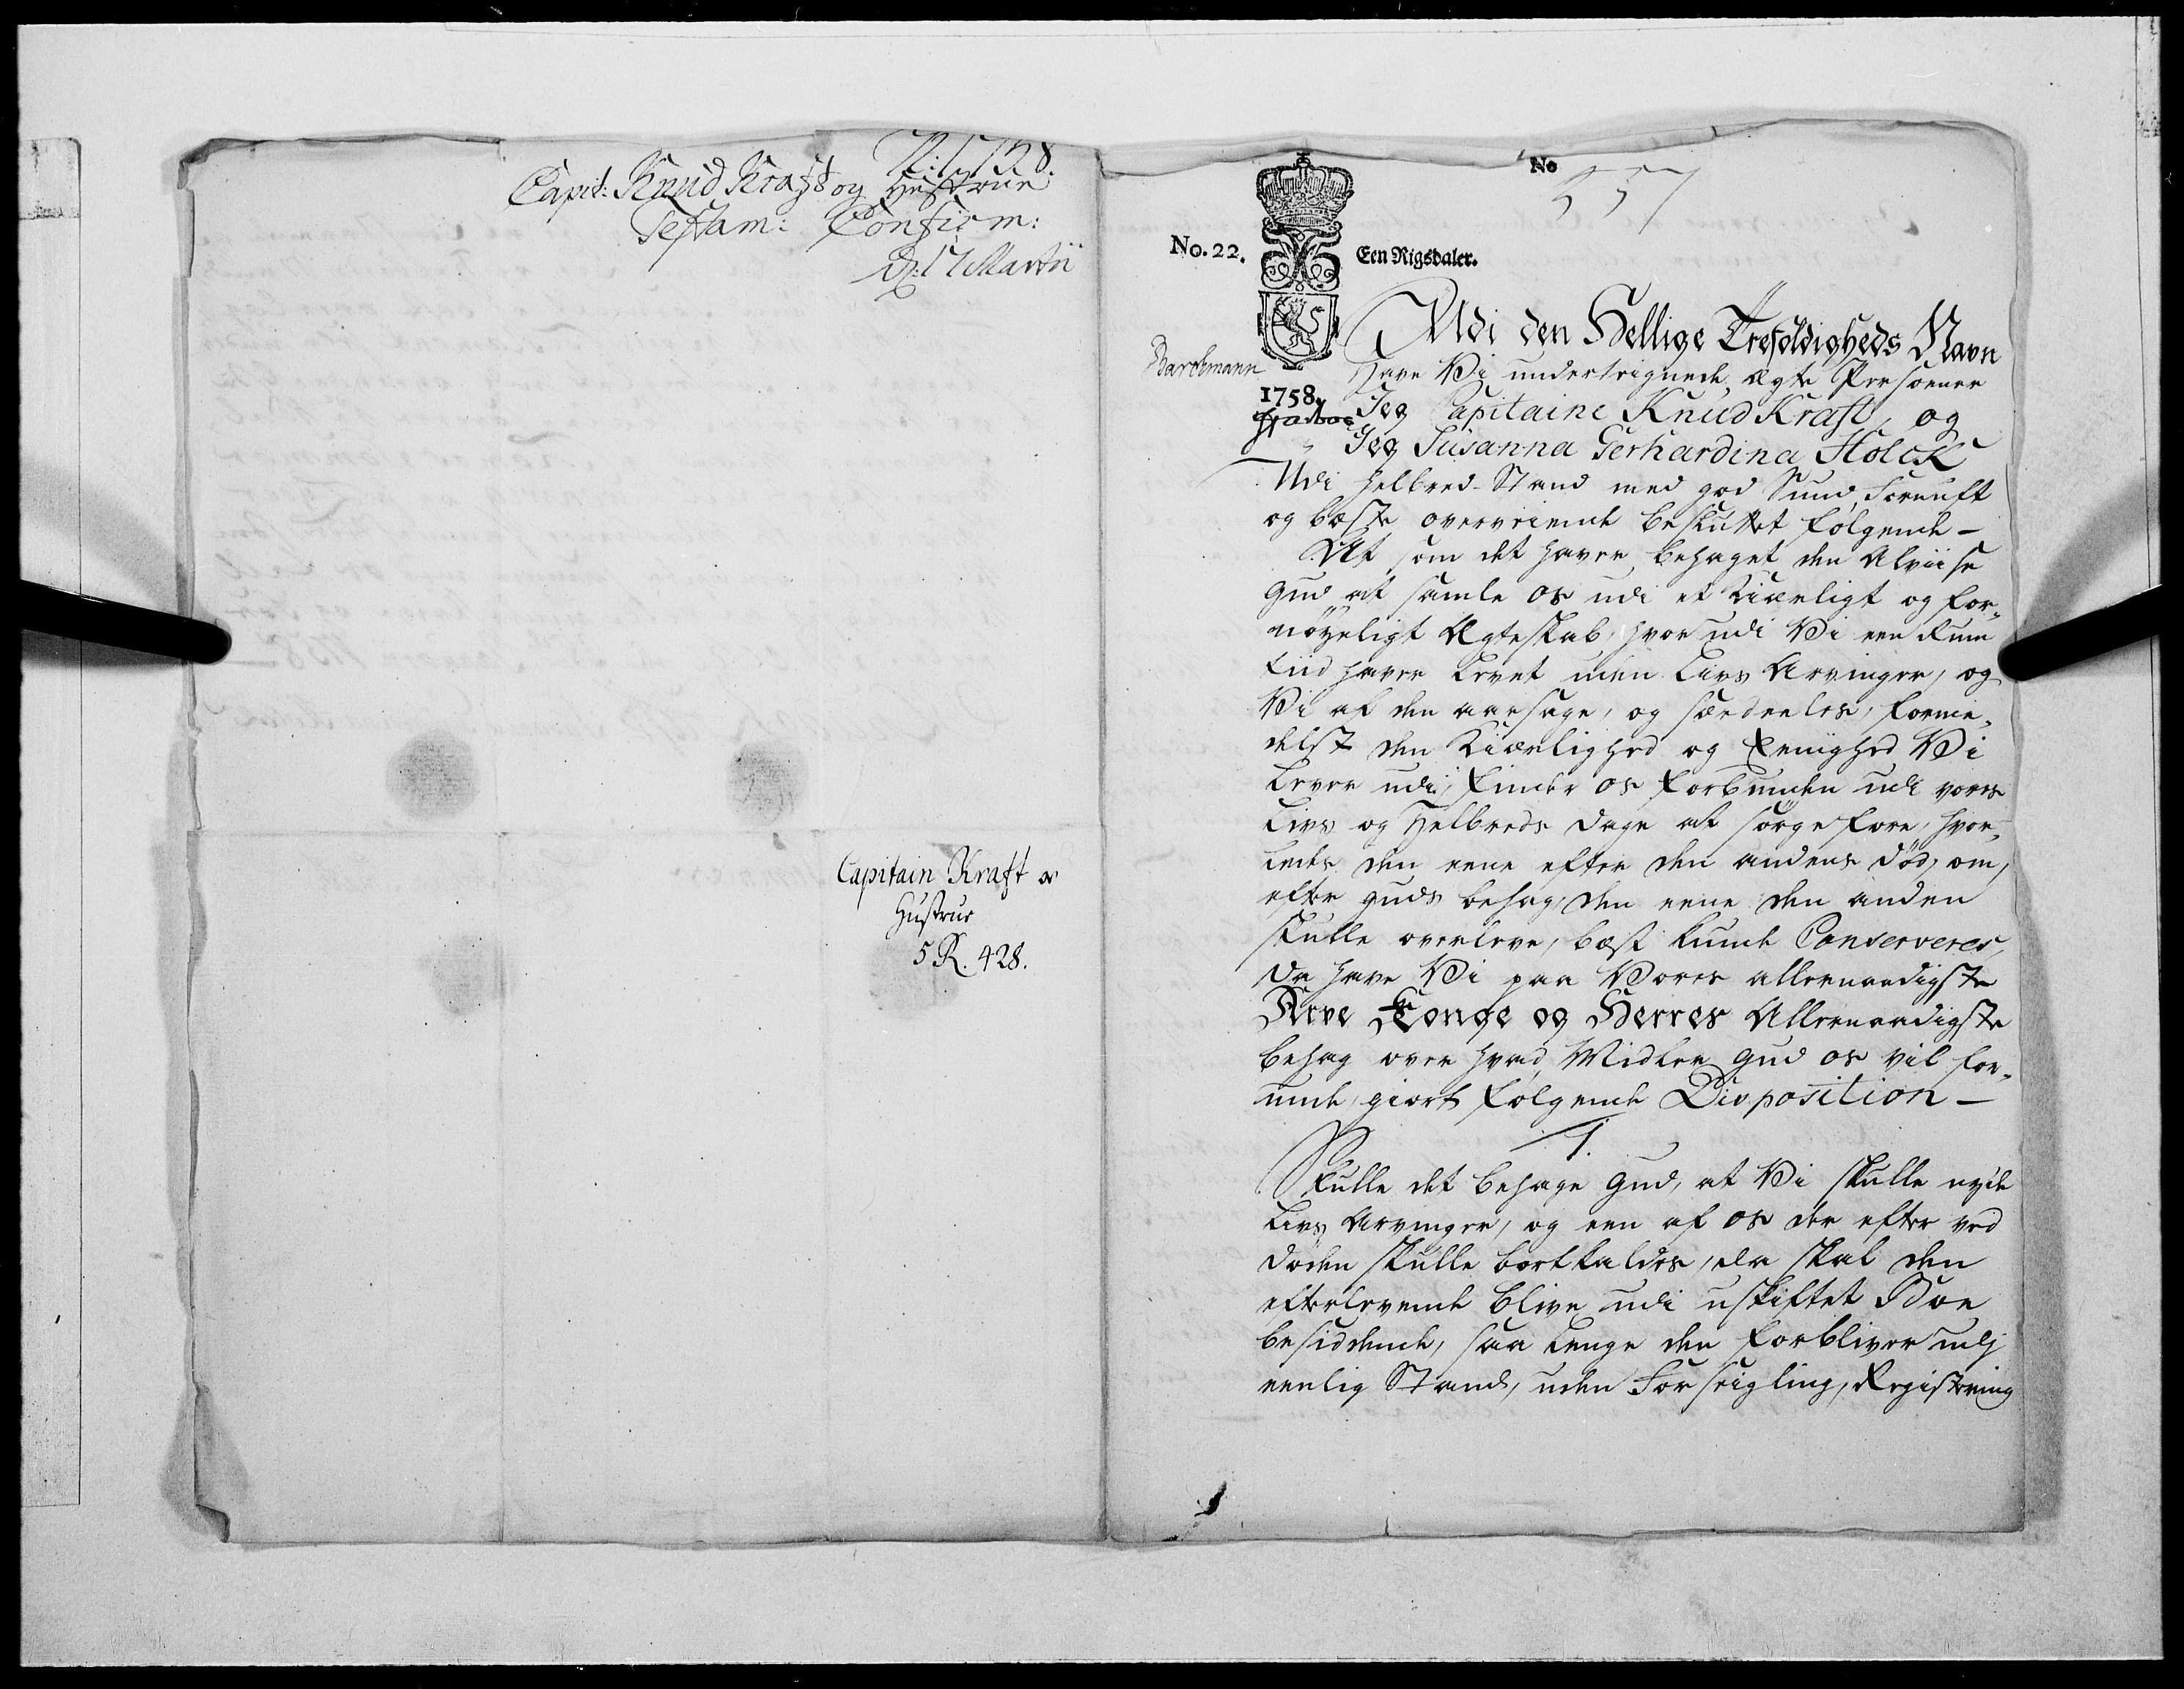 A: 1758.
Capit: Knud Kraft og Hustrue
Testam: Confirm:
D: 17 Martii
Capitain Kraft og
Hustrue
5 R. 428.
No
357
No. 22.
Een Rigsdaler.
Barchmann
1758.
Udi den Hellige Trefoldigheds Navn
Have Vi undertegnede ægte Persooner
Jeg Capitaine Knud Kraft, og
Jeg Susanna Gerhardina Holck
Udi Helbred-Stand med god Sund Fornuft
og bæste overveiende besluttet følgende –
At som det haver behaget den Alviise
Gud at samle os udi et Kiærligt og for-
nøyeligt Ægteskab, hvorudi Vi een Rum
tiid haver levet uden Livs Arvinger, og
Vi af den aarsage, og særdeeles, forme-
delst den Kiærlighed og Eenighed Vi
lever udi, finder os forbunden udi vores
Livs og Helbreds Dage at sørge for, hvor-
ledes den eene efter den andens Død, om,
efter Guds behag, den eene den anden
skulle overleve, bæst kunde Conserveres,
Da have Vi paa Vores allernaadigste
Arve Konge og Herres Allernaadigste
behag over hvad Midler Gud os vil for-
unde, giort følgende Disposition –
1.
Skulle det behage Gud, at Vi skulle nyde
Livs Arvinger, og een af os der efter ved
Døden skulle bortkaldes, da skal den
efterlevende blive udi uskiftet Boe
besiddende, saa lenge den forbliver udj
eenlig Stand, uden Forseigling, Registering